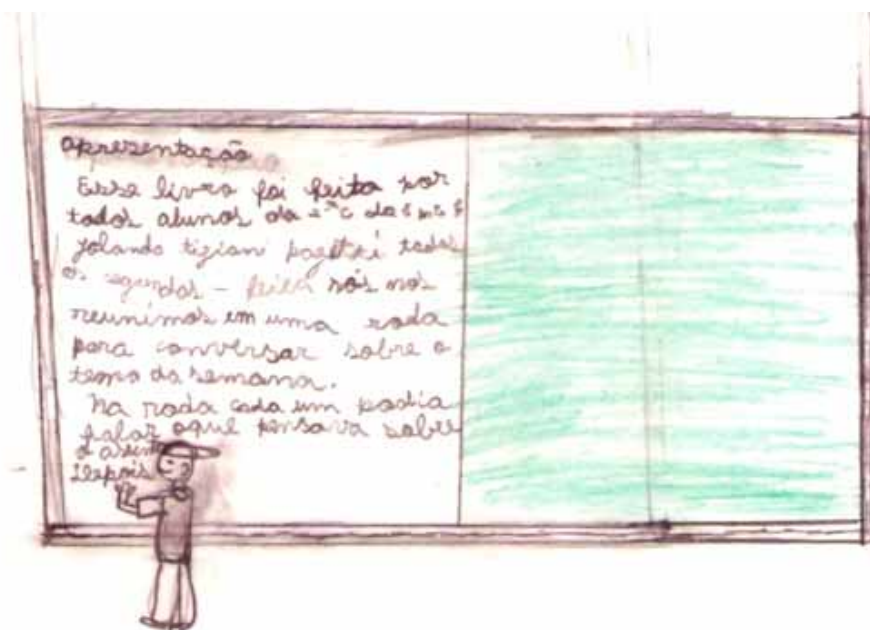 apresentação
Esse livro foi feito por
todos alunos da 2ªC da E M E F
jolando tizian pagltki todas
segundas - feira nós nos
reunimos em uma roda
para conversar sobre o
tema da semana.
Na roda cada um podia
falar oque pensava sobre
o assun
Depois